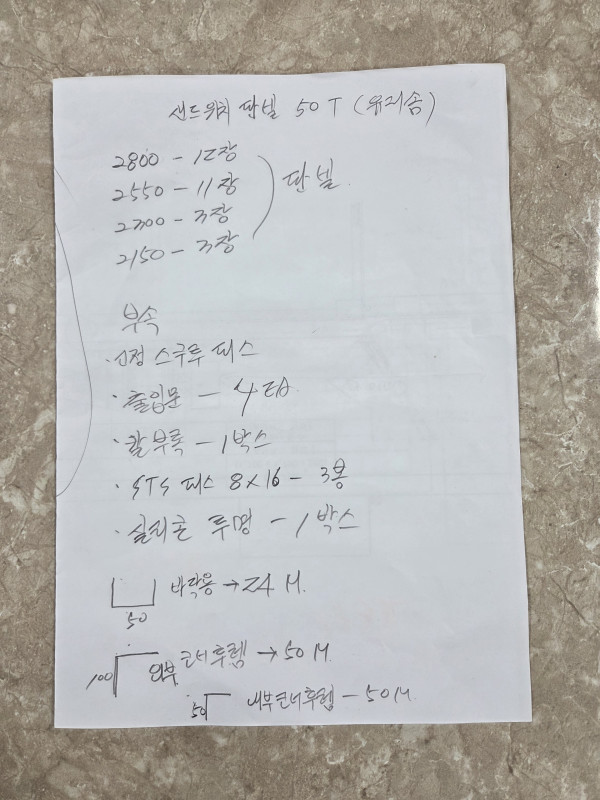 샌드위치 판넬 50T (유리솜)
2800 - 12장
2550 - 11장
판넬
2300 - 3장
2150 - 3장
부속
스쿠루 피스
· 출입문 - 4 EA
· 칼부록 - 1박스
· STS 피스 8×16 - 3봉
· 실리콘 투명 - 1박스
50 바닥용 → 24 M.
100 외부 코너후렘 → 50 M.
50 내부코너후렘 - 50 M.